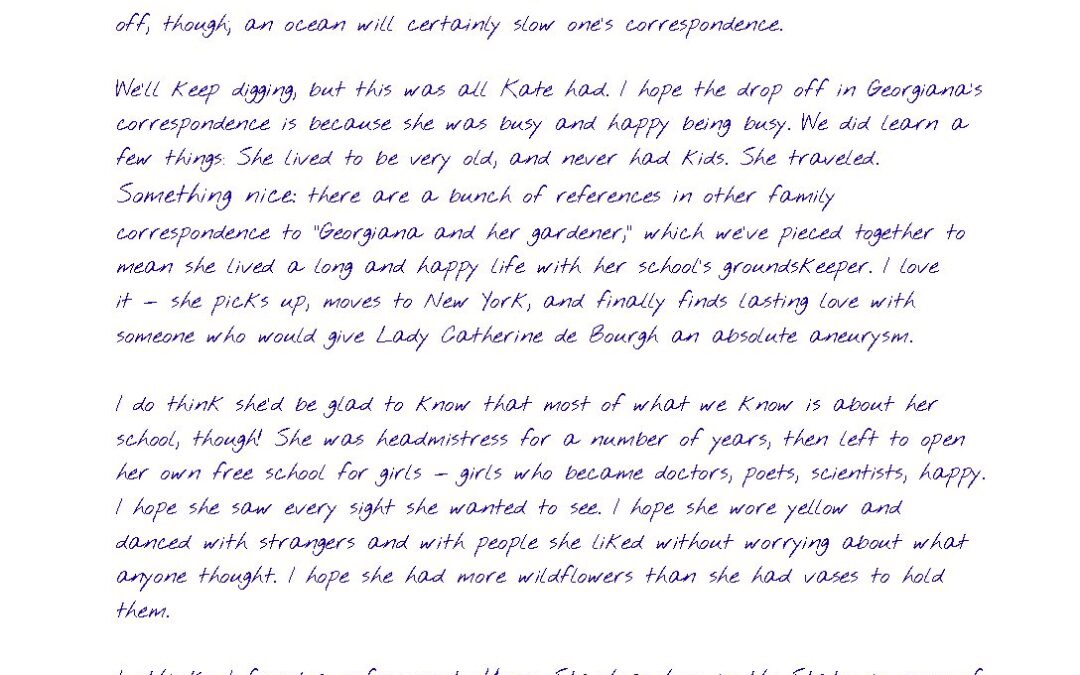 off, though, an ocean will certainly slow one's correspondence.
We'll keep digging, but this was all Kate had. I hope the drop off in Georgiana's
correspondence is because she was busy and happy being busy. We did learn a
few things: She lived to be very old, and never had kids. She traveled.
Something nice: there are a bunch of references in other family
correspondence to "Georgiana and her gardener," which we've pieced together to
mean she lived a long and happy life with her school's groundskeeper. I love
it – she picks up, moves to New York, and finally finds lasting love with
someone who would give Lady Catherine de Bourgh an absolute aneurysm.
I do think she'd be glad to know that most of what we know is about her
school, though! She was headmistress for a number of years, then left to open
her own free school for girls – girls who became doctors, poets, scientists, happy.
I hope she saw every sight she wanted to see. I hope she wore yellow and
danced with strangers and with people she liked without worrying about what
anyone thought. I hope she had more wildflowers than she had vases to hold
them.